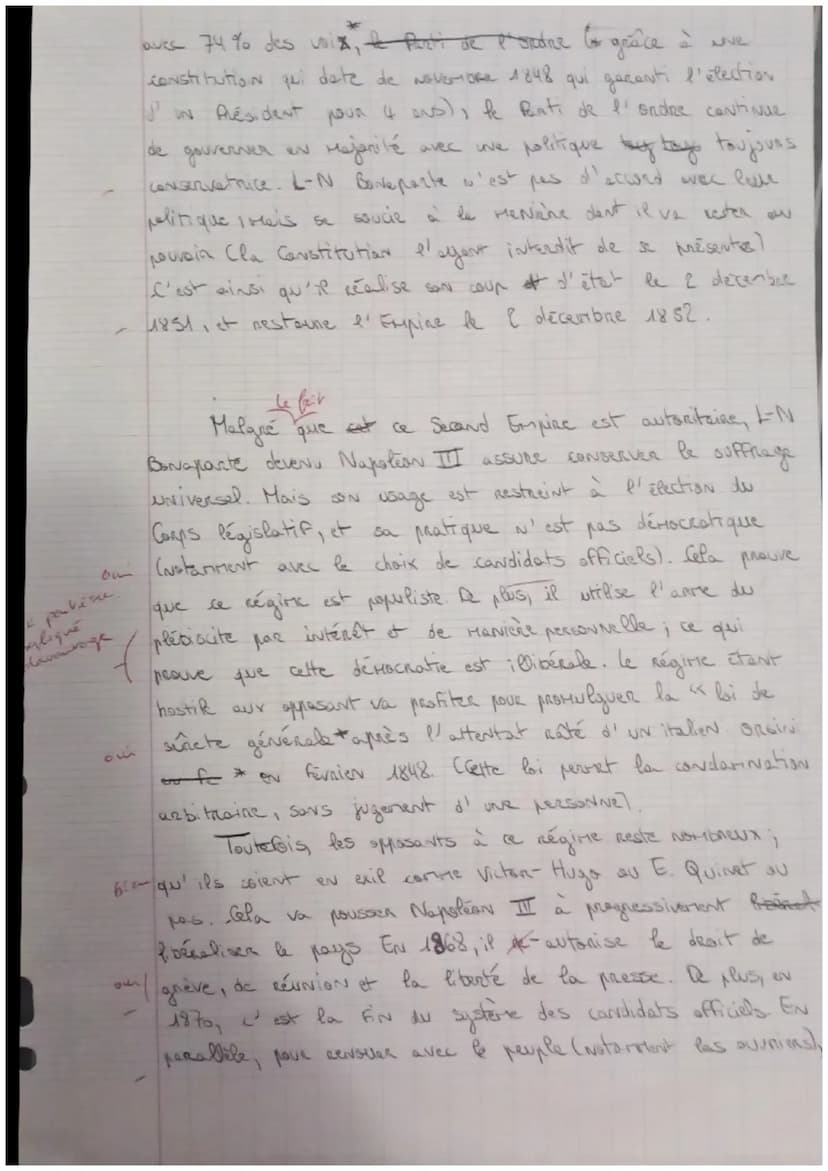 avec 74% des voix*, le Parti de l'ordre (* grâce à une
constitution qui date de novembre 1848 qui garanti l'élection
d'un Président pour 4 ans), le Parti de l'ordre continue
de gouverner en majorité avec une politique toujours
conservatrice. L-N Bonaparte n'est pas d'accord avec leur
politique, mais se soucie à la manière dont il va rester au
pouvoir (la Constitution l'ayant interdit de se présenter)
C'est ainsi qu'il réalise son coup d'état le 2 décembre
1851, et restaure l'Empire le 2 décembre 1852.
le fait
Malgré que cet ce Second Empire est autoritaire, L-N
Bonaparte devenu Napoléon III assure conserver le suffrage
universel. Mais son usage est restreint à l'élection du
Corps législatif, et sa pratique n'est pas démocratique
(notamment avec le choix de candidats officiels). Cela prouve
oui
que ce régime est populiste. De plus, il utilise l'arme du
plébiscite par intérêt et de manière personnelle ; ce qui
davantage
prouve que cette démocratie est illibérale. Le régime étant
hostile aux opposant va profiter pour promulguer la « loi de
sûrete générale * après l'attentat raté d'un italien Orsini
oui
* en février 1848. (Cette loi permet la condamnation
arbitraire, sans jugement d'une personne).
Toutefois, les opposants à ce régime reste nombreux ;
bien qu'ils soient en exil comme Victor-Hugo ou E. Quinet ou
pas. Cela va pousser Napoléon III à progressivement
libéraliser le pays En 1868, il autorise le droit de
oui grève, de réunion et la liberté de la presse. De plus, en
1870, c'est la fin du système des candidats officiels. En
parallèle, pour renouer avec le peuple (notamment les ouvriers),